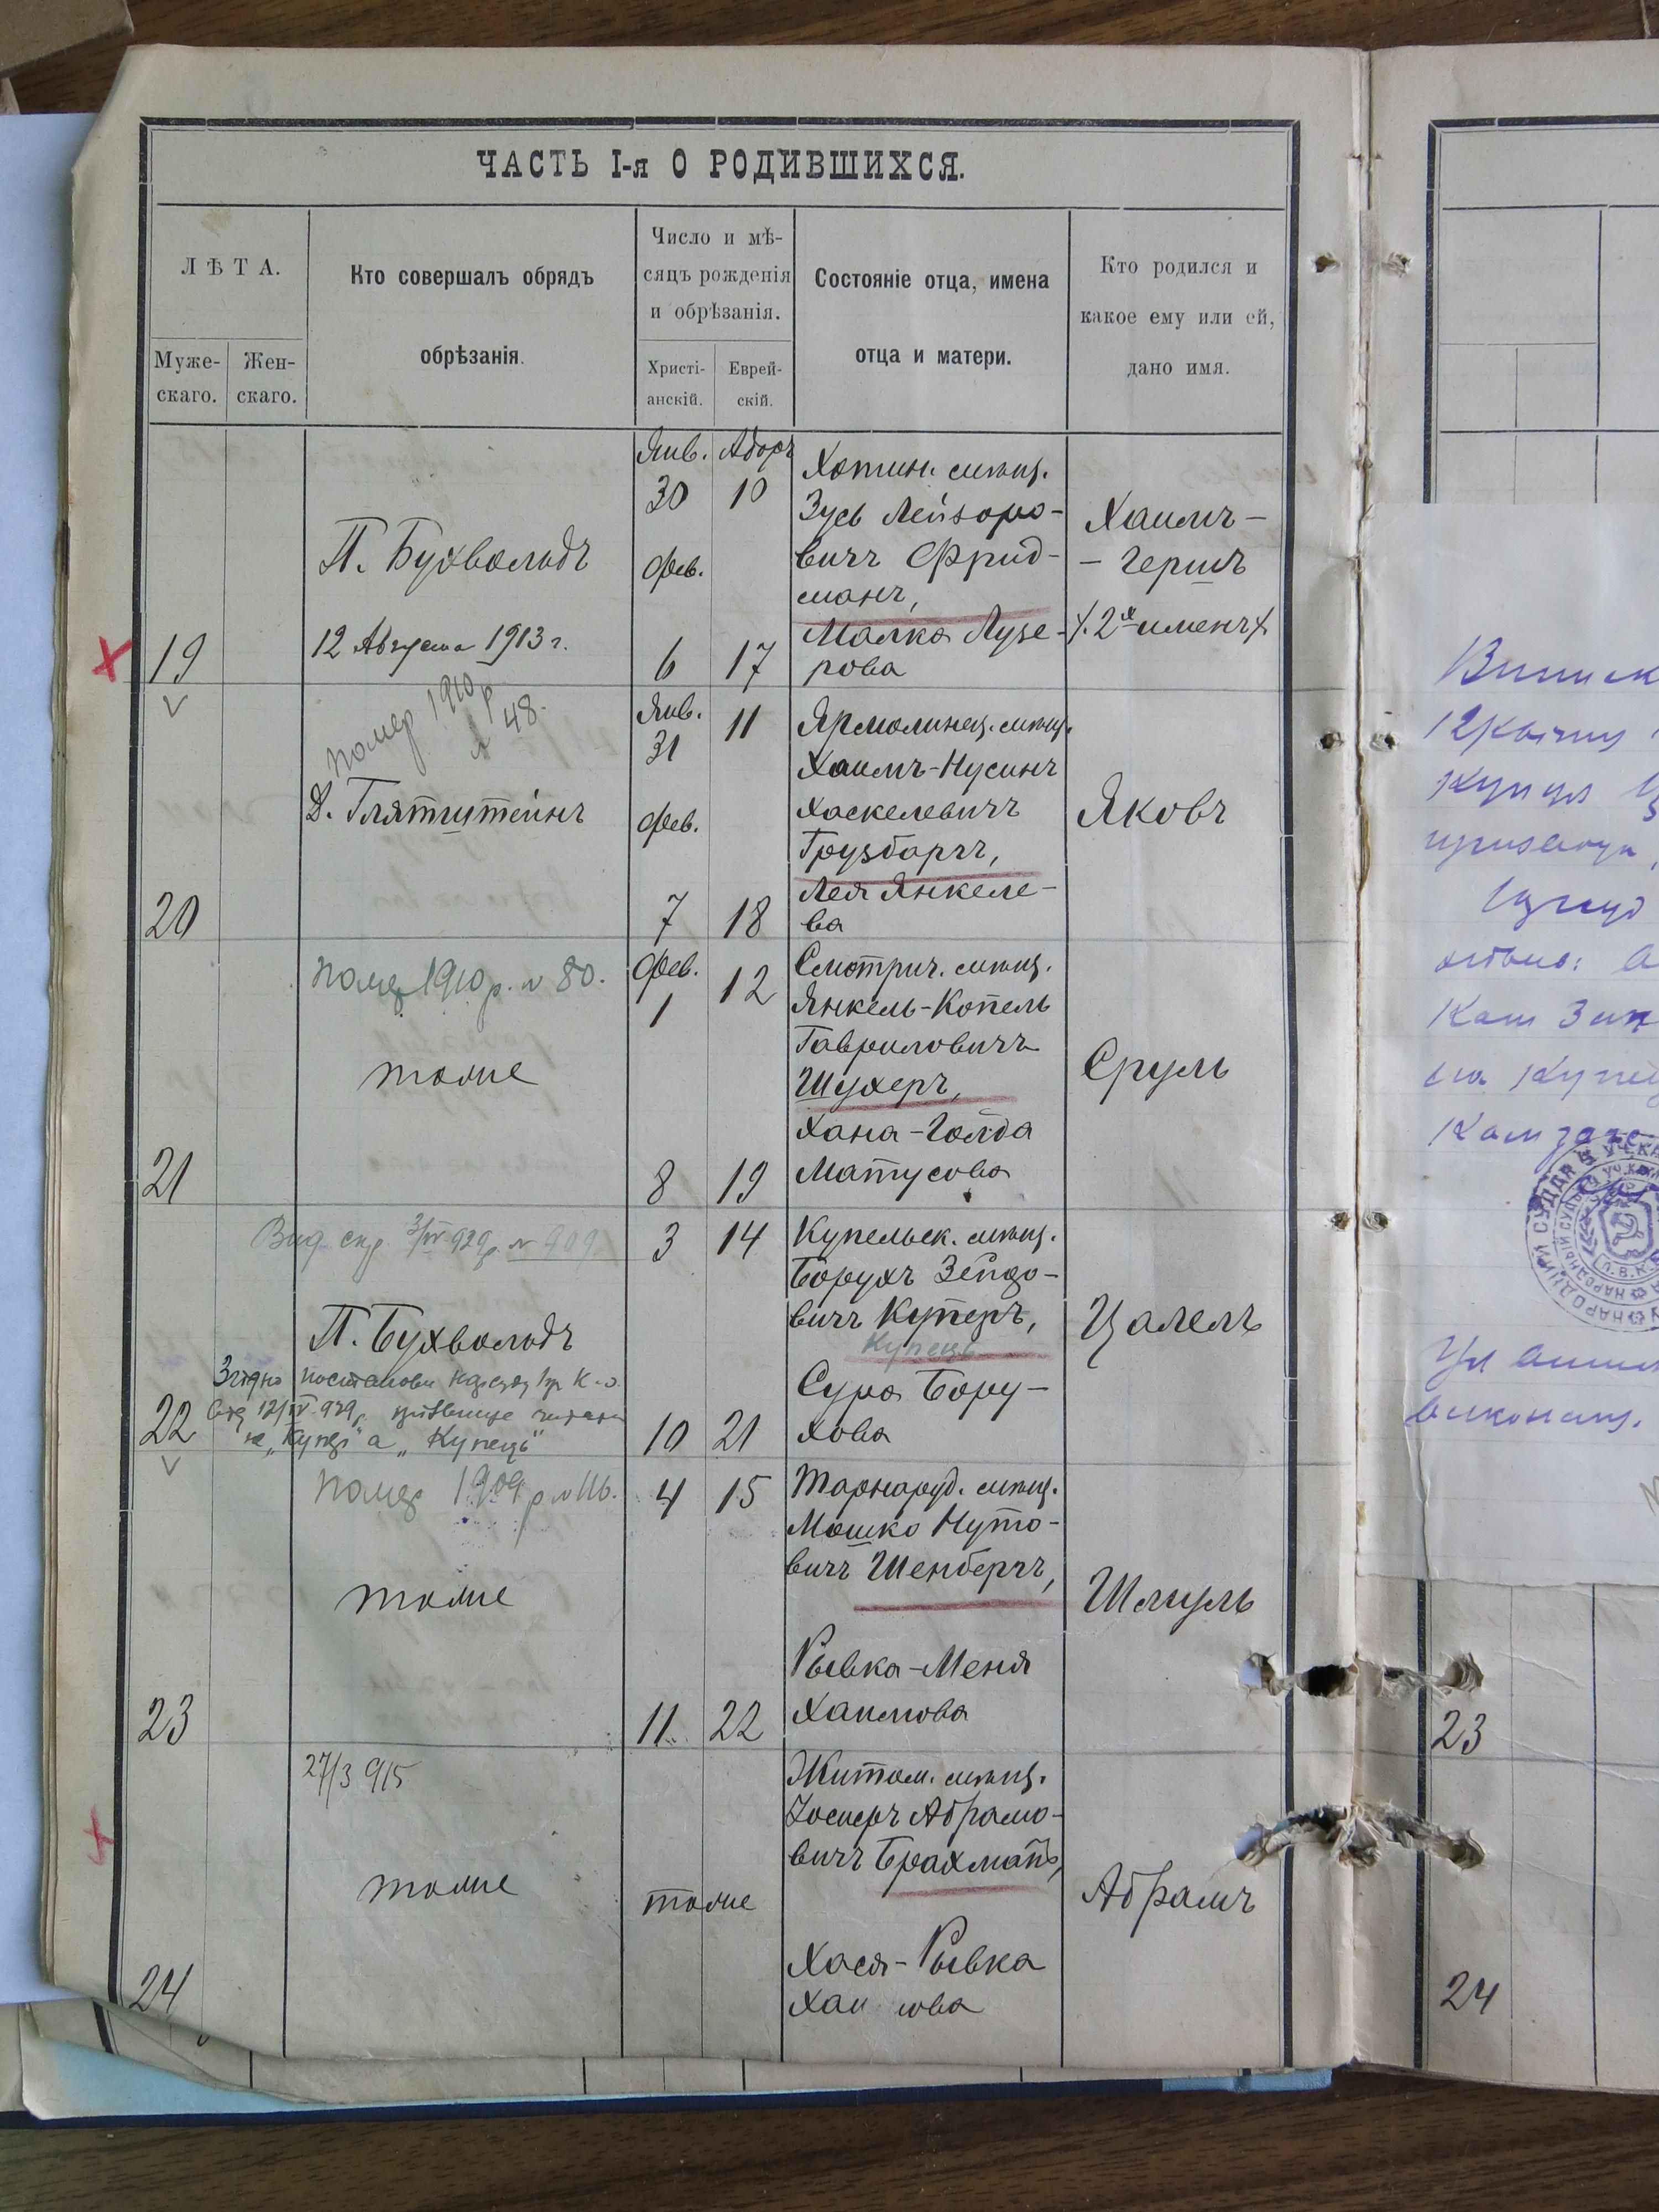 ЧАСТЬ I-я О РОДИВШИХСЯ.
ЛѢТА.
Муже-
скаго.
Жен-
скаго.
Кто совершалъ обрядъ
обрѣзанія.
Число и мѣ-
сяцъ рожденія
и обрѣзанія.
Христі-
анскій.
Еврей-
скій.
Состояніе отца, имена
отца и матери.
Кто родился и
какое ему или ей,
дано имя.
19
П. Бухвольдъ
12 Августа 1913 г.
Янв. Адоръ
30 10
Фев.
6 17
Хотин. мѣщ.
Зусь Лейзоро-
вичъ Фрид-
манъ,
Малка Лузе-
рова
Хаимъ-
-Гершъ
/. 2х именъ /
20
помер 1910 р
№ 48.
Д. Глятштейнъ
Янв.
31 11
Фев.
7 18
Ярмолинец. мѣщ.
Хаимъ-Нусинъ
Хаскелевичъ
Грузбаргъ,
Лея Янкеле-
ва
Яковъ
21
Помер 1910 р. № 80.
тоже
Фев.
1 12
8 19
Смотрич. мѣщ.
Янкель-Копель
Гавриловичъ
Шухеръ,
Хана-Голда
Матусова
Сруль
22
Вид. скр. 3/IV 929 р. № 909
П. Бухвольдъ
Згідно постанови
від 12/IV 929 р. прізвище читати
не „Купер" а „Купець"
3 14
10 21
Купельск. мѣщ.
Борухъ Зейдо-
вичъ Куперъ,
Купець
Сура Бору-
хова
Цалель
23
Помер 1909 р № 116.
тоже
4 15
11 22
Тарноруд. мѣщ.
Мошко Нуто-
вичъ Шенбергъ,
Рывка-Меня
Хаимова
Шмуль
24
27/3 915
тоже
тоже
Житом. мѣщ.
Іосифъ Абрамо-
вичъ Брахманъ,
Хася-Рывка
Хаи ова
Абрамъ
23
24